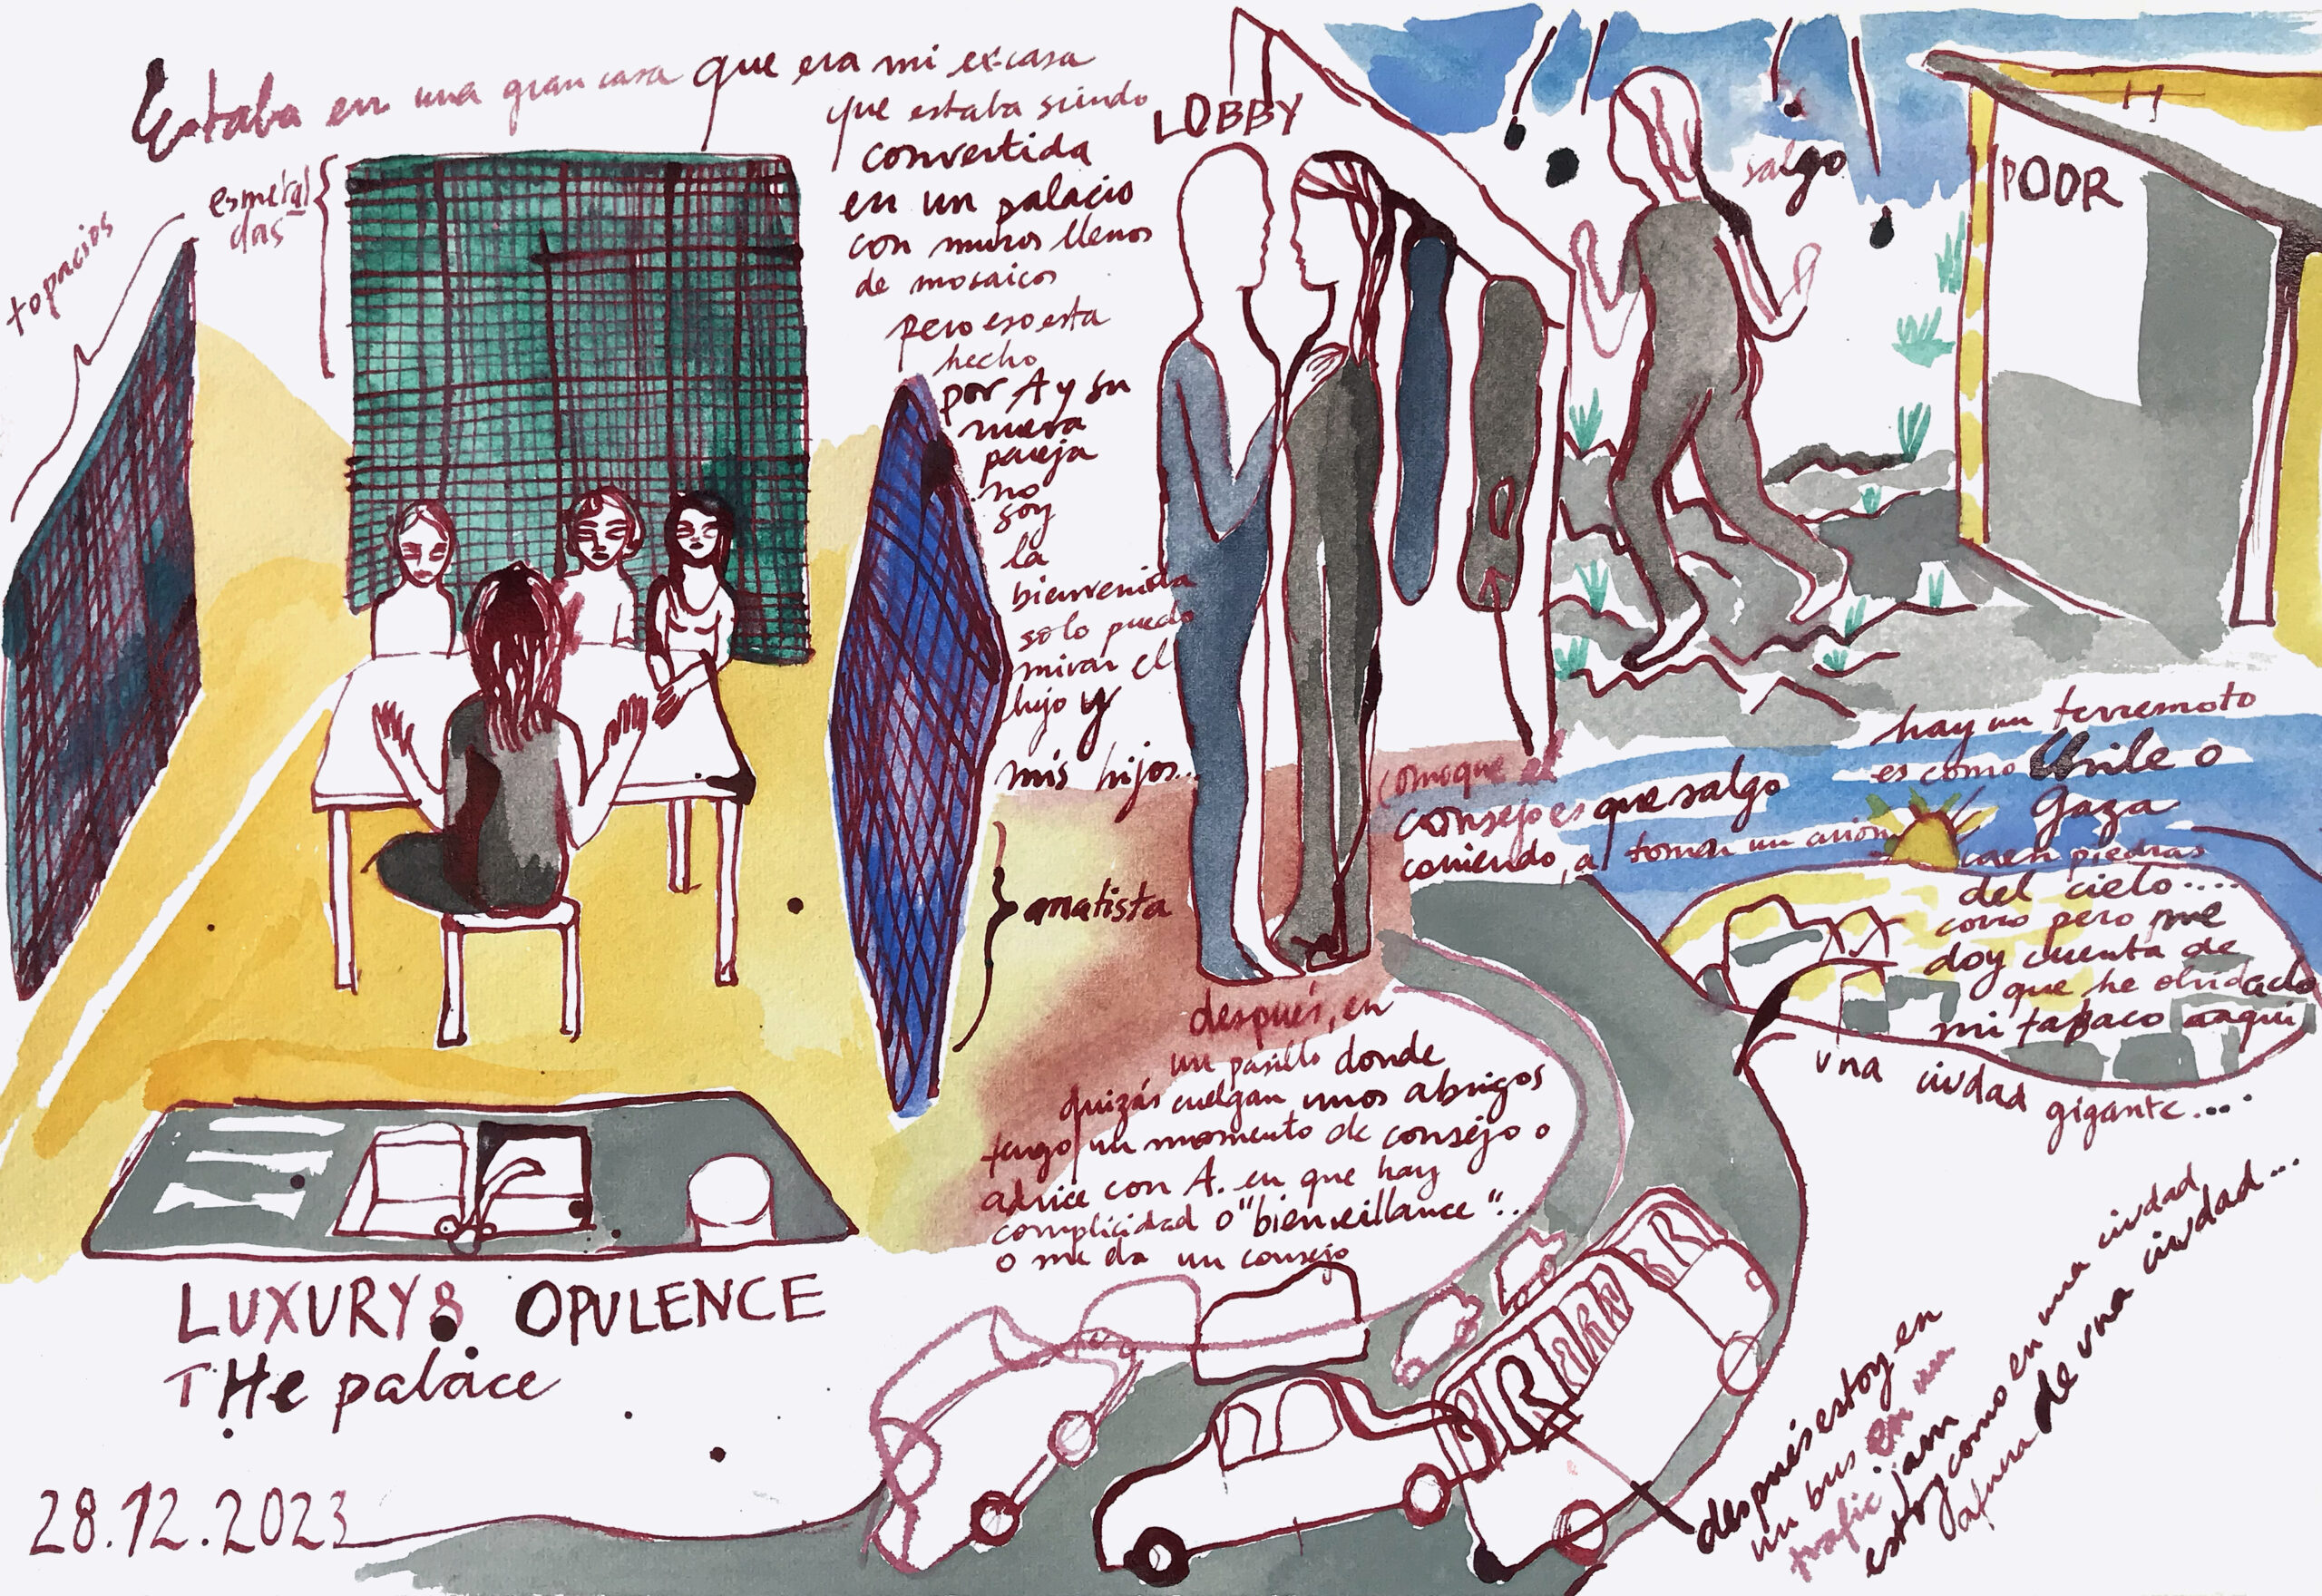 Estaba en una gran casa que era mi ex-casa
que estaba siendo
convertida
en un palacio
con muros llenos
de mosaicos
pero eso esta
hecho
por A y su
nueva
pareja
no
soy
la
bienvenida
solo puedo
mirar el
lujo y
mis hijos...
topacios
esmeral
das
amatista
LUXURY & OPULENCE
THe palace
28.12.2023
LOBBY
después, en
un pasillo donde
quizás cuelgan unos abrigos
tengo un momento de consejo o
advice con A. en que hay
complicidad o "bienveillance"...
o me da un consejo
salgo
POOR
como que el
consejo es que salgo
corriendo, a tomar un avión
hay un terremoto
es como Chile o
Gaza
caen piedras
del cielo....
corro pero me
doy cuenta de
que he olvidado
mi tabaco aaqui
una ciudad gigante....
después estoy en
un bus en un
trafic jam
estoy como en una ciudad
afuera de una ciudad...